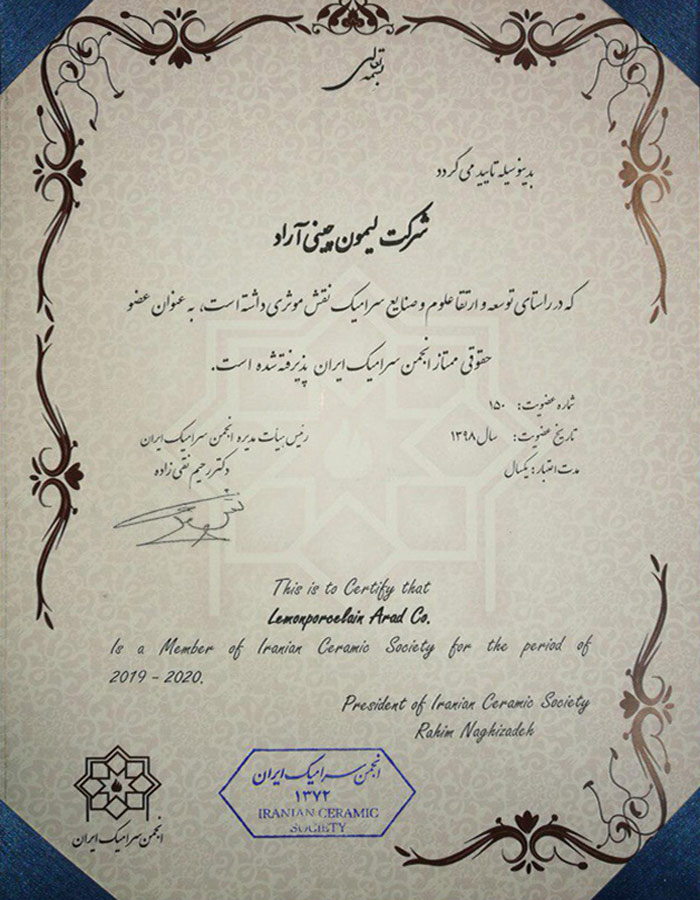 بسمه تعالی
بدینوسیله تایید می گردد
شرکت لیمون چینی آراد
که در راستای توسعه و ارتقا علوم و صنایع سرامیک نقش موثری داشته است، به عنوان عضو
حقوقی ممتاز انجمن سرامیک ایران پذیرفته شده است.
شماره عضویت: ۱۵۰
تاریخ عضویت: سال ۱۳۹۸
مدت اعتبار: یکسال
رئیس هیأت مدیره انجمن سرامیک ایران
دکتر رحیم نقی زاده
This is to Certify that
Lemonporcelain Arad Co.
Is a Member of Iranian Ceramic Society for the period of
2019 - 2020.
President of Iranian Ceramic Society
Rahim Naghizadeh
انجمن سرامیک ایران
انجمن سرامیک ایران
۱۳۷۲
IRANIAN CERAMIC
SOCIETY